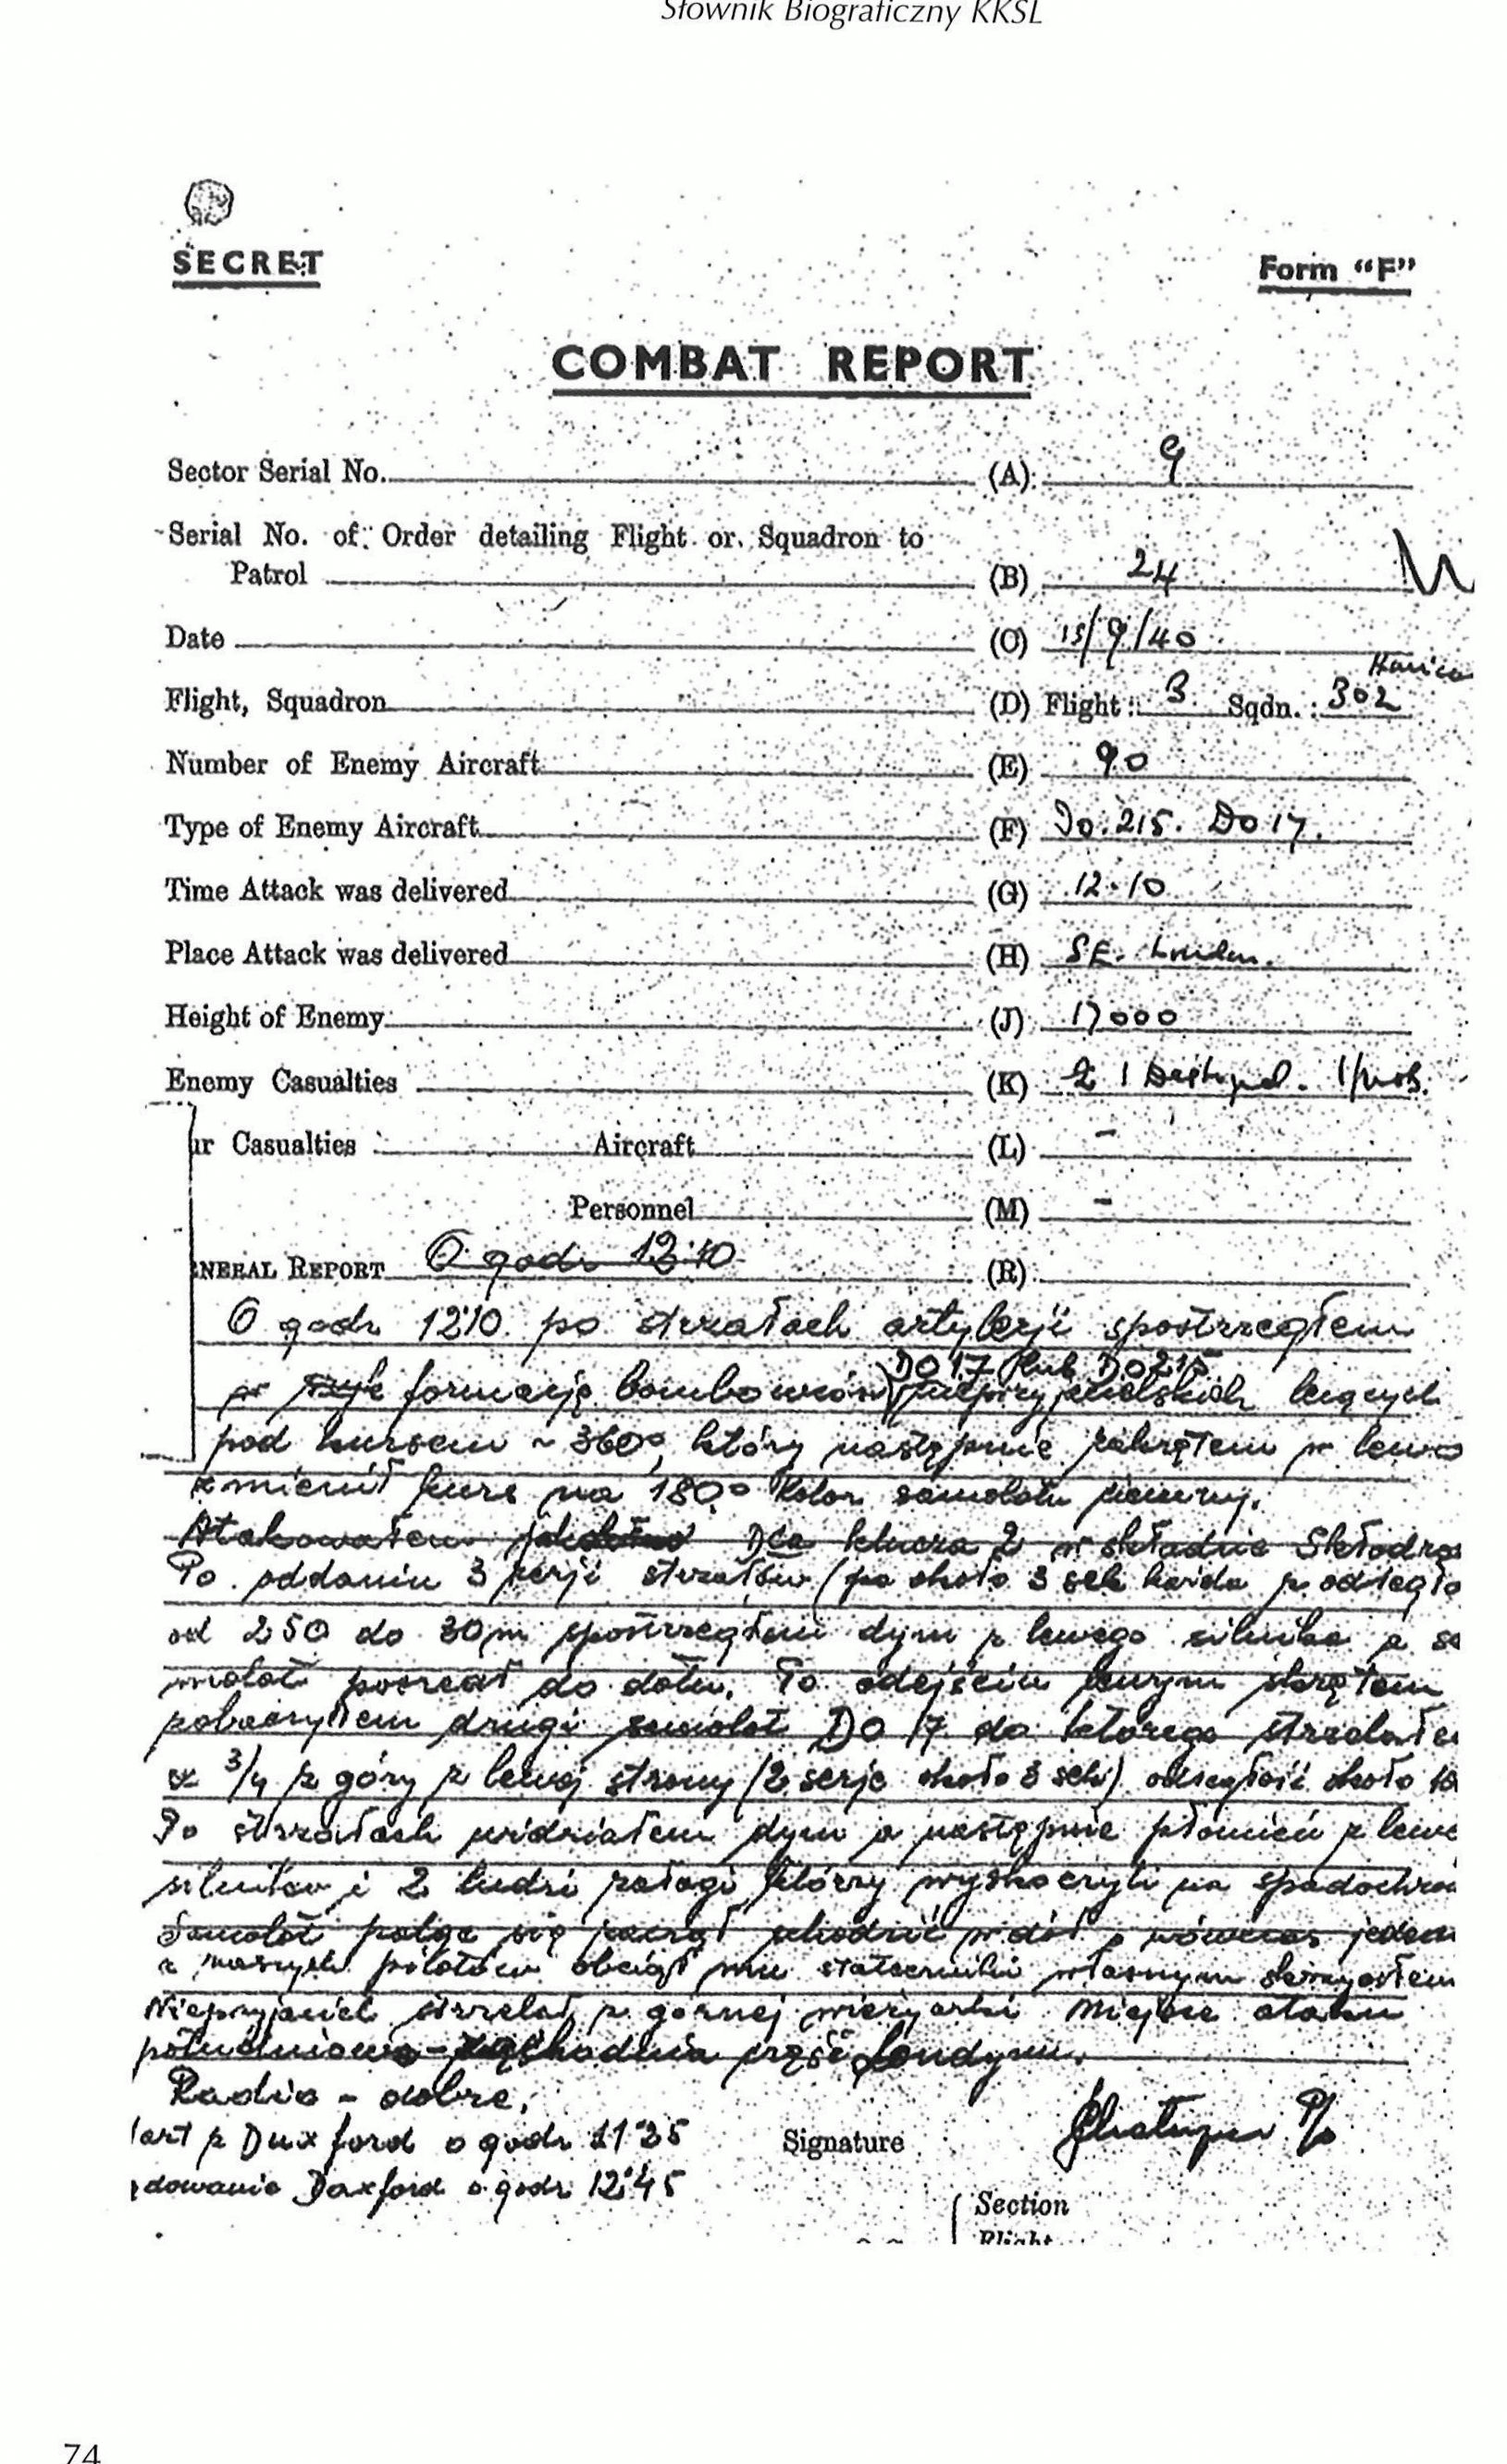 Słownik Biograficzny KKSL
SECRET
Form "F"
COMBAT REPORT
Sector Serial No. (A) 9
Serial No. of Order detailing Flight or Squadron to
Patrol (B) 24
Date (C) 15/9/40
Flight, Squadron (D) Flight: B Sqdn.: 302
Number of Enemy Aircraft (E) 90
Type of Enemy Aircraft (F) Do. 215. Do 17.
Time Attack was delivered (G) 12.10
Place Attack was delivered (H) SE. London.
Height of Enemy (J) 17000
Enemy Casualties (K) 1 Destroyed. 1 prob.
ur Casualties Aircraft (L) -
Personnel (M) -
ENERAL REPORT O godz 12.10 (R)
O godz 12.10 po strzałach artylerji spostrzegłem
DO 17 lub DO 215
formacje bombowców nieprzyjacielskich lecących
pod kursem ~ 360°, który następnie zakrętem w lewo
zmienił kurs na 180° Kolor samolotu ciemny.
Atakowałem klucza 2 w składzie
Po oddaniu 3 serji strzałów (po około 3 sek każda z odległo
od 250 do 30m spostrzegłem dym z lewego silnika a sa
molot poszedł do dołu. Po odejściu lewym skrętem
zobaczyłem drugi samolot DO 17 do którego strzelałem
z 3/4 z góry z lewej strony (2 serje około 3 sek) odległość około
Po strzałach widziałem dym a następnie płomień z lewe
silników i 2 ludzi załogi którzy wyskoczyli na spadochro
Samolot paląc się zaczął schodzić w dół a wówczas jeden
z naszych pilotów obciął mu stateczniki własnym skrzydłem
Nieprzyjaciel strzelał z górnej wieżyczki Miejsce ataku
południowo-zachodnia część Londynu.
Radio - dobre.
tart z Duxford o godz 11.35
Signature P/o
dowanie Duxford o godz 12.45
Section
Flight
74